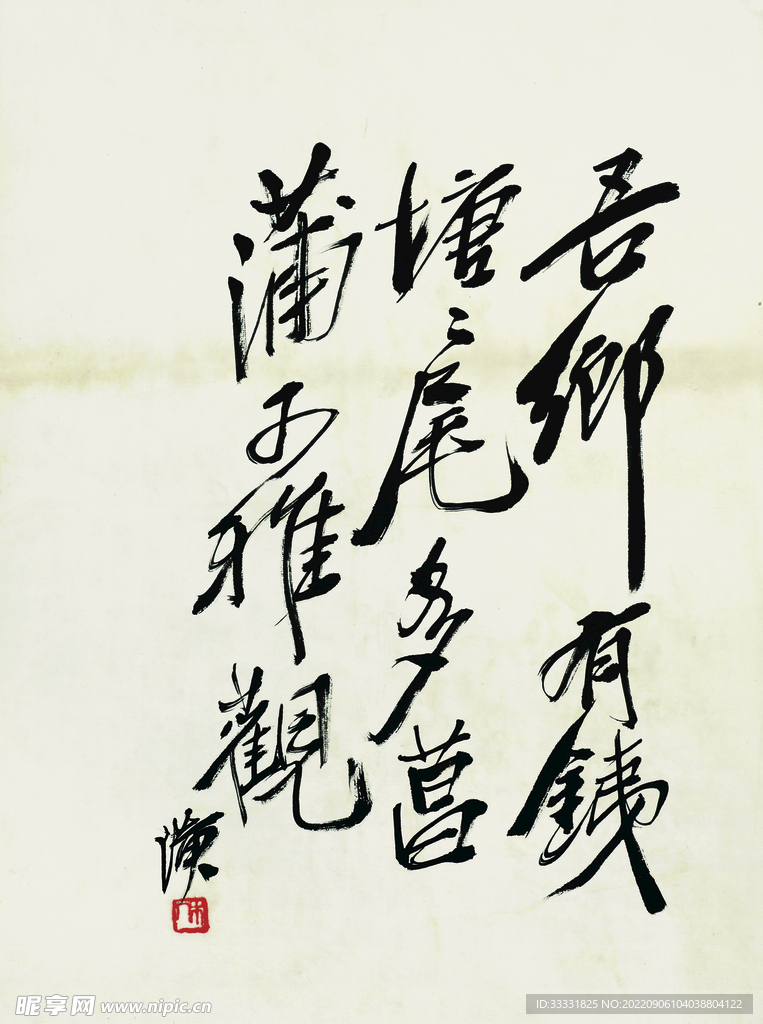 吾鄉有銕
塘〻尾多菖
蒲可雅觀
璜
木人
昵享网 www.nipic.cn
ID:33331825 NO:20220906104038804122